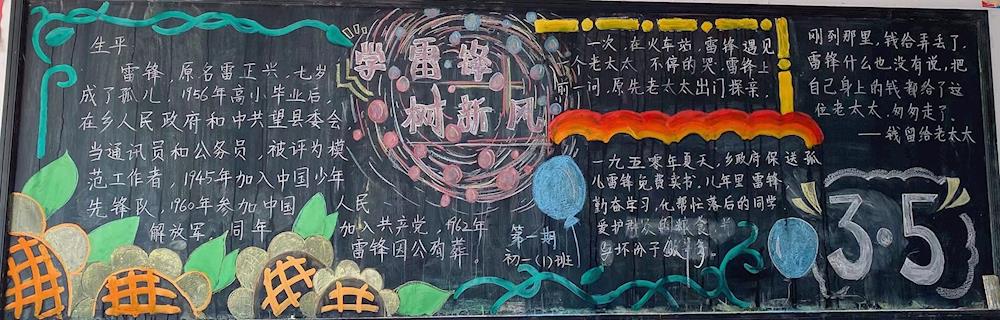 生平
雷锋,原名雷正兴,七岁
成了孤儿,1956年高小毕业后,
在乡人民政府和中共望县委会,
当通讯员和公务员,被评为模
范工作者,1945年加入中国少年
先锋队,1960年参加中国 人民
解放军,同年 加入共产党,1962年
雷锋因公殉葬。
学雷锋
树新风
第一期
初一(1)班
一次,在火车站,雷锋遇见
一个老太太 不停的哭,雷锋上
前一问,原先老太太出门探亲,
刚到那里,钱给弄丢了,
雷锋什么也没有说,把
自己身上的钱都给了这
位老太太,匆匆走了。
——钱留给老太太
一九五零年夏天,乡政府保送孤
儿雷锋免费卖书,几年里雷锋
勤奋学习,化帮忙落后的同学,
爱护群众的粮食,并
3·5